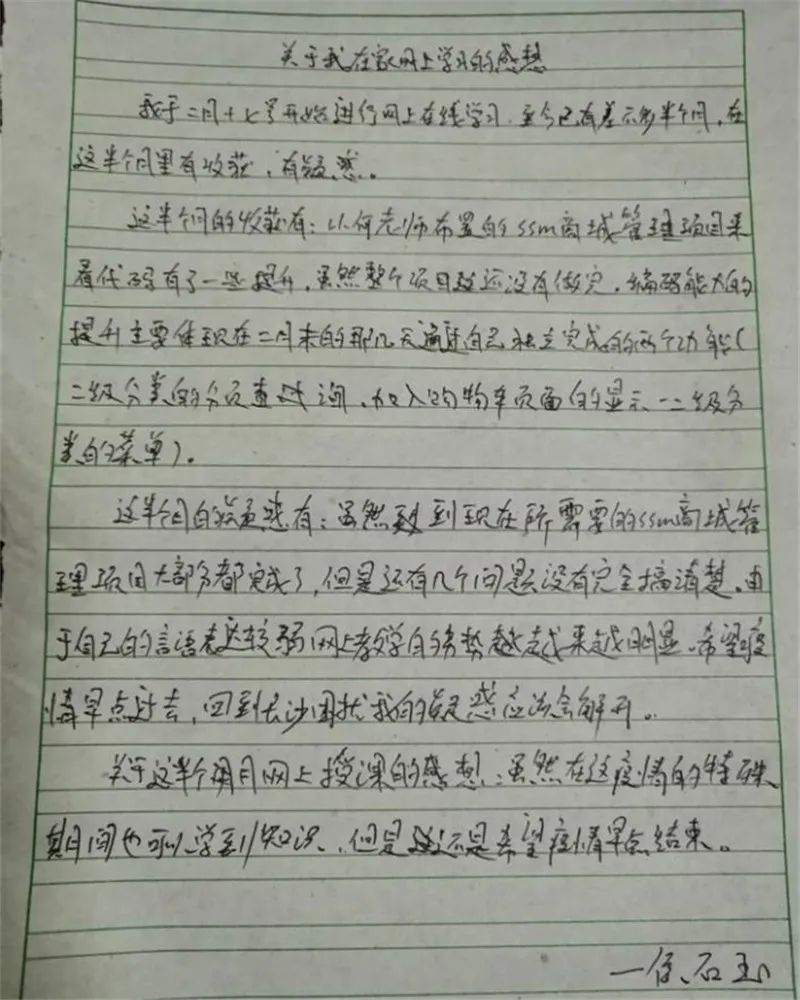 关于我在家网上学习的感想
我于二月十七号开始进行网上在线学习.至今已有差不多半个月,在
这半个月里有收获,有疑惑。
这半个月的收获有:从何老师布置的ssm商城管理项目来
看代码有了一些提升,虽然整个项目还没有做完,编码能力的
提升主要体现在二月末的那几天通过自己独立完成的两个功能(
二级分类的分页查询、加入购物车页面的显示一二级分
类的菜单)。
这半个月的疑惑有:虽然到现在所需要的ssm商城管
理项目大部分都完成了,但是还有几个问题没有完全搞清楚。由
于自己的言语表达较弱网上教学的劣势越来越明显.希望疫
情早点过去,回到长沙困扰我的疑惑应该会解开。
关于这半个月网上授课的感想:虽然在这疫情的特殊
期间也可以学到知识,但是还是希望疫情早点结束。
石玉